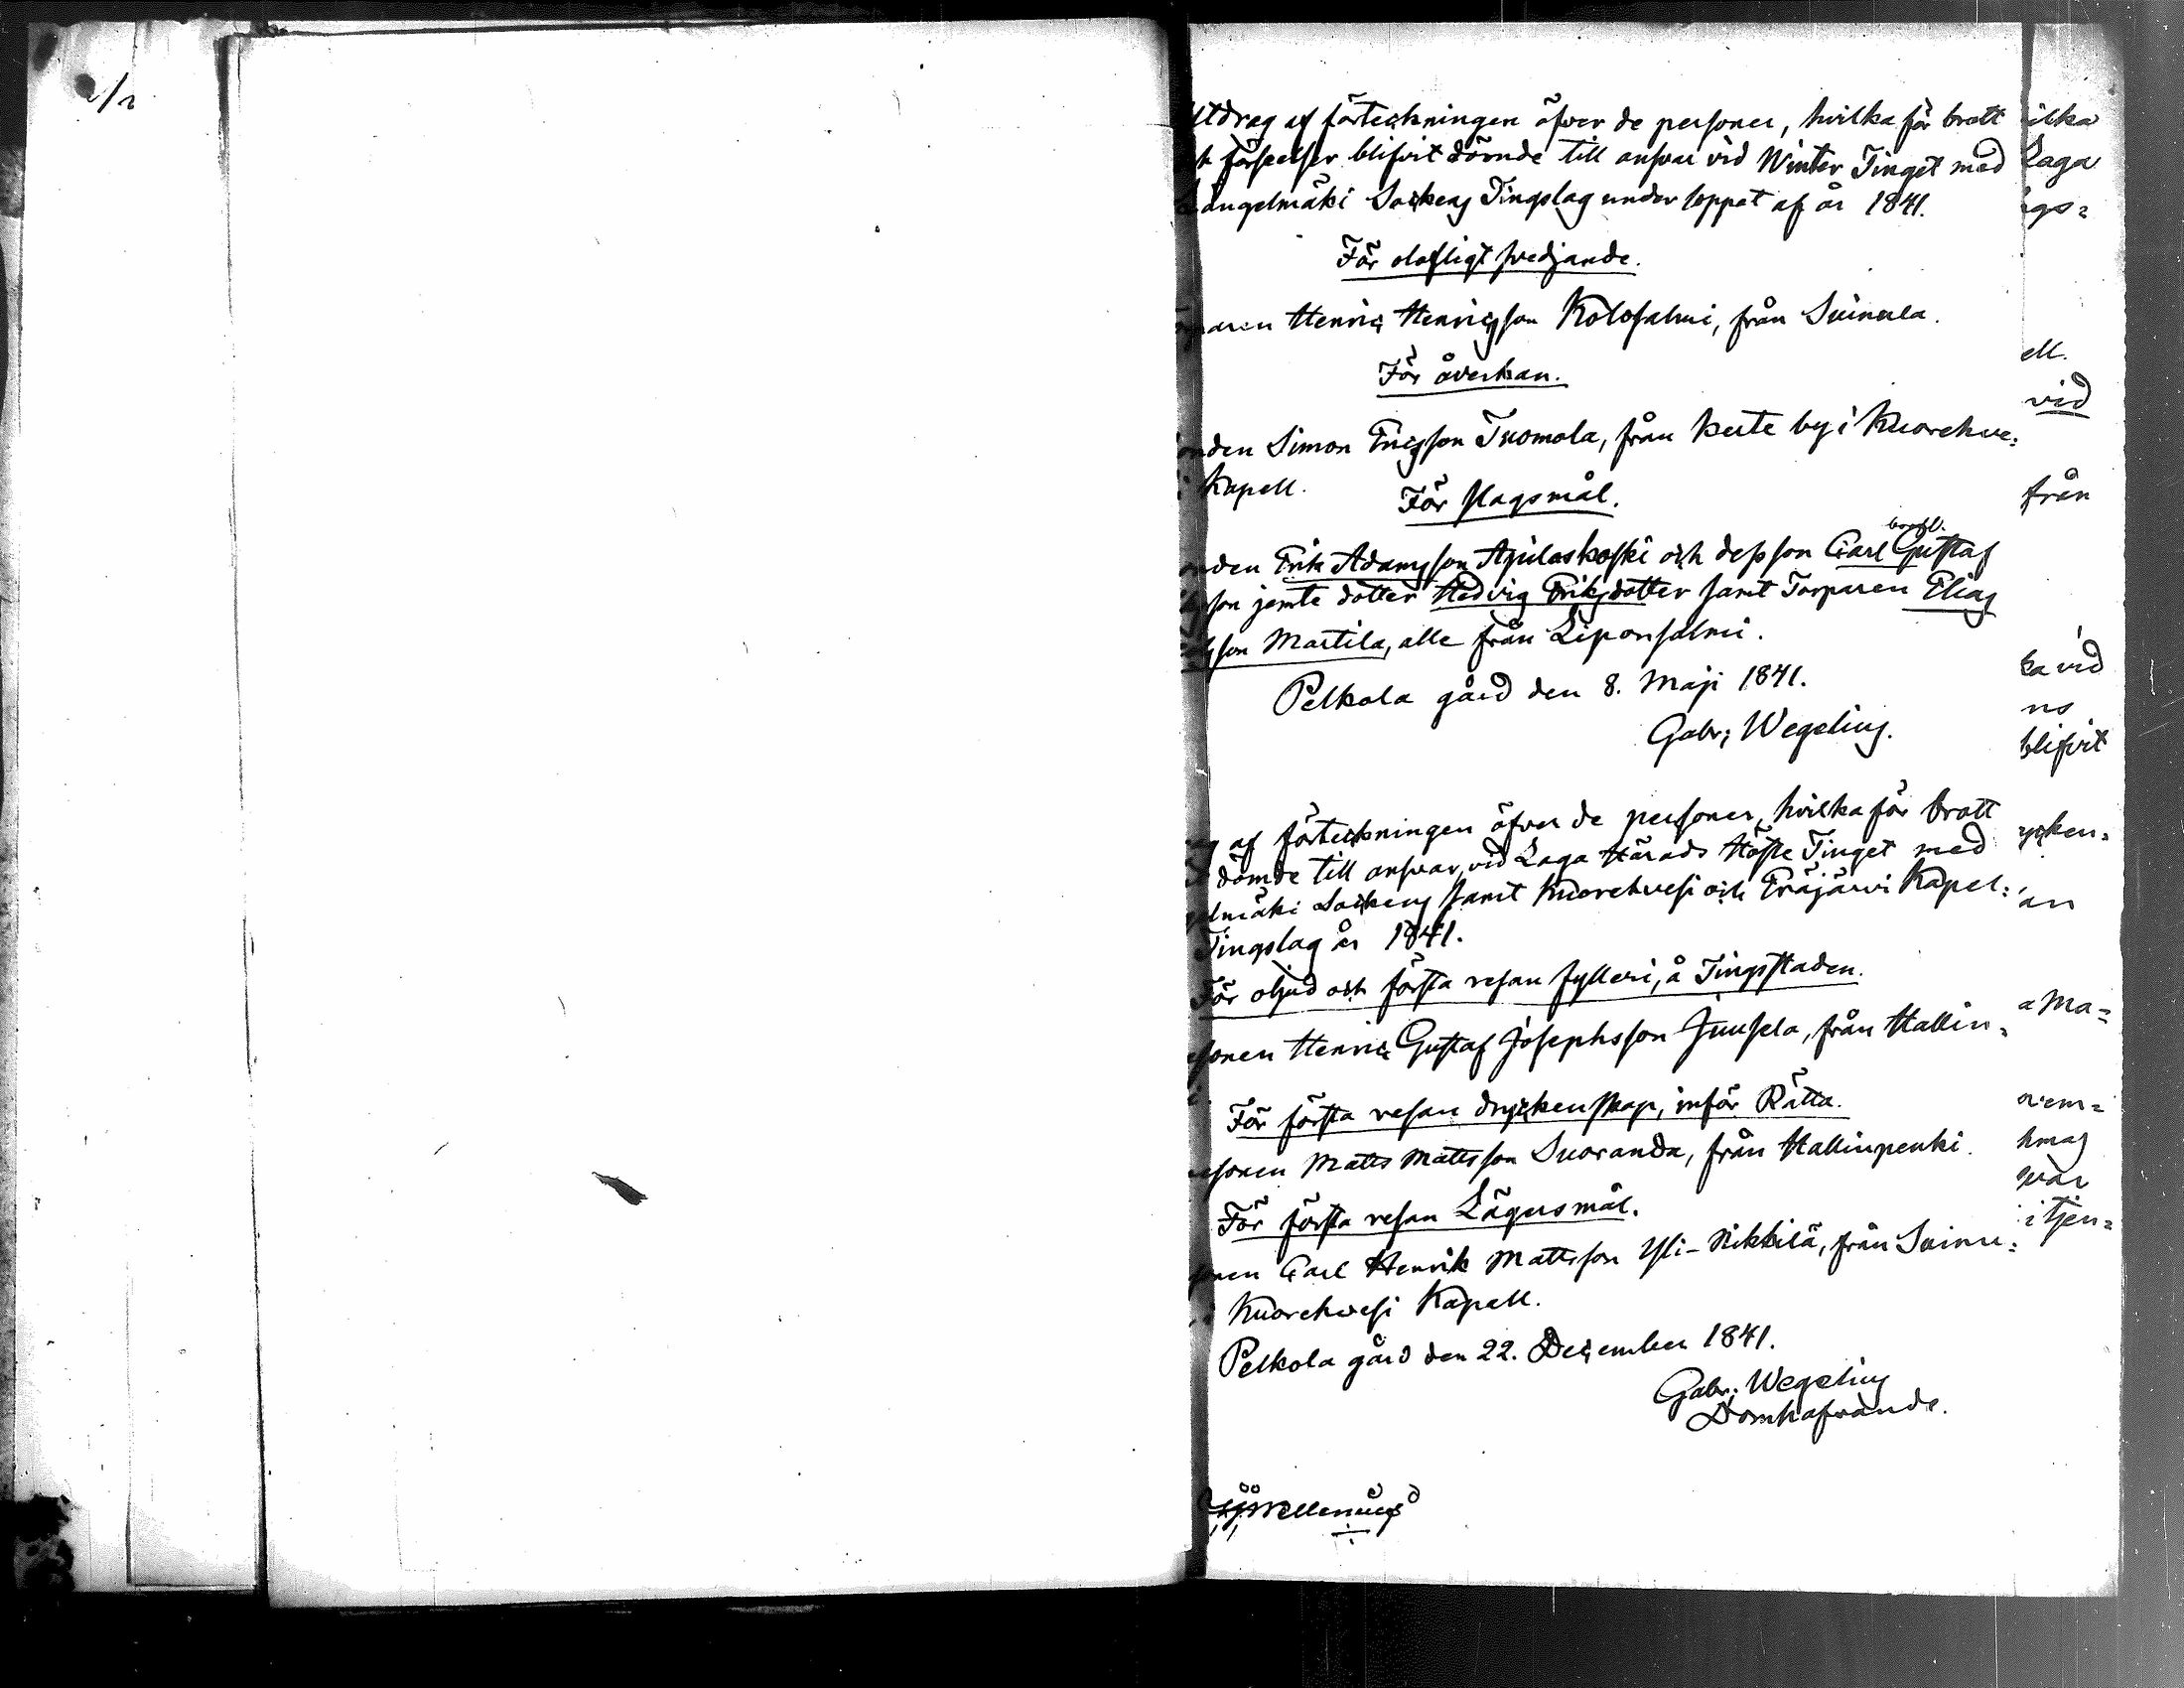 Utdrag af förteckningen öfver de personer, hvilka för brott
h förseelser blifvit dömde till ansvar vid Winter Tinget med
Längelmäki Sockens Tingslag under loppet af år 1841.
För olofligt svedjande.
paren Henric Henricsson Kolosalmi, från Suinula.
För åverkan.
onden Simon Ericsson Tuomola, från by i Kuorehve=
i Kapell.
För slagsmål.
onden Erik Adamsson Ajuloskoski och dess son Carl Gustaf
son jemte dotter Hedvig Eriksdotter samt Torparen Elias
sson Martila, alle från Liponsalmi.
Pelkola gård den 8. Maji 1841.
Gabr: Wegelius.
af förteckningen öfver de personer, hvilka för brott
dömde till ansvar, vid Laga Härads Höste Tinget med
elmäki Sockens samt Kuorehvesi och Eräjärvi Kapel=
Tingslag år 1841.
För oljud och första resan fylleri, å Tingsstaden.
sonen Henric Gustaf Josephsson Juusela, från Hallin=
i
För första resan dryckenskap, inför Rätta.
sonen Matts Mattsson Suoranda, från Hallinpenki.
För första resan Lägersmål.
sonen Carl Henrik Mattsson Yli-Nikkilä, från Suinu=
i Kuorehvesi Kapell.
Pelkola gård den 22. December 1841.
Gabr: Wegelius
Domhafvande.
ilka
Laga
ngs=
ell.
vid
från
ka vid
ns
blifvit
ycken=
an
a Ma=
ovem=
hmas
svar
i tjen=